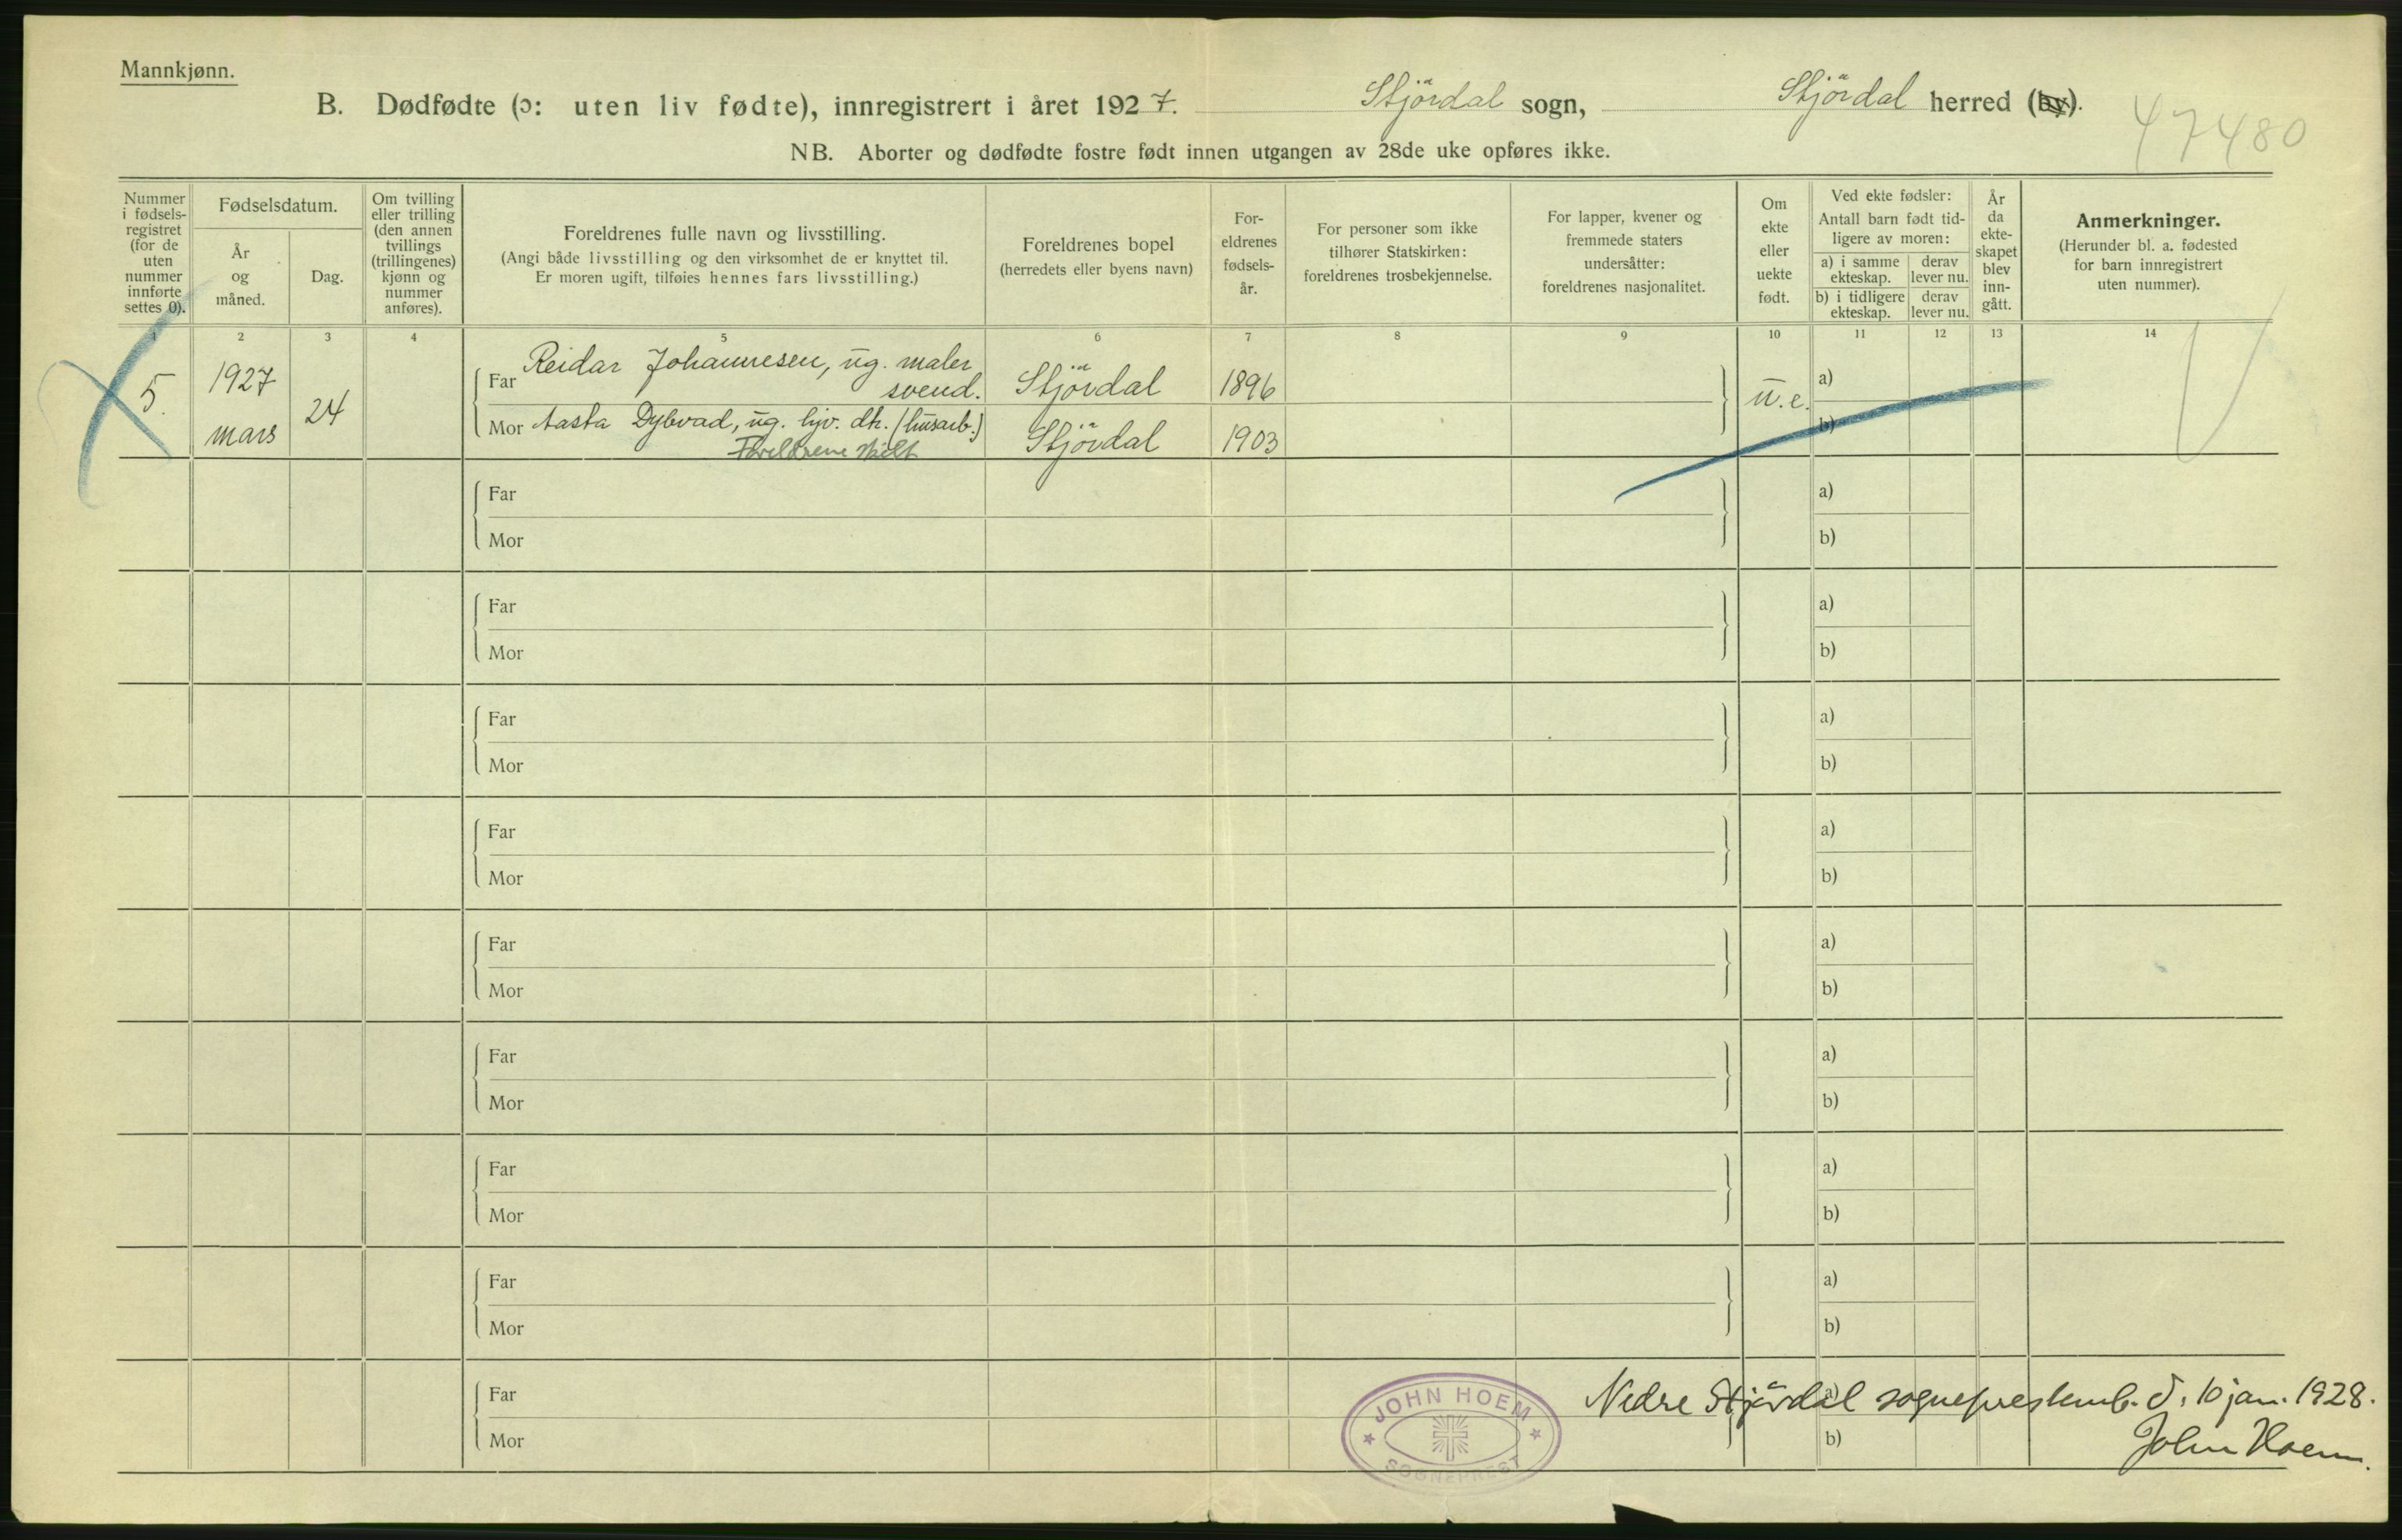 Mannkjønn.
B. Dødfødte (ɔ: uten liv fødte), innregistrert i året 1927. Stjördal sogn, Stjördal herred (by).
47480
NB. Aborter og dødfødte fostre født innen utgangen av 28de uke opføres ikke.
Nummer i fødsels-registret (for de uten nummer innførte settes 0).
Fødselsdatum.
År og måned.
Dag.
Om tvilling eller trilling (den annen tvillings (trillingenes) kjønn og nummer anføres).
Foreldrenes fulle navn og livsstilling.
(Angi både livsstilling og den virksomhet de er knyttet til.
Er moren ugift, tilføies hennes fars livsstilling.)
Foreldrenes bopel
(herredets eller byens navn)
For-eldrenes fødsels-år.
For personer som ikke tilhører Statskirken: foreldrenes trosbekjennelse.
For lapper, kvener og fremmede staters undersåtter: foreldrenes nasjonalitet.
Om ekte eller uekte født.
Ved ekte fødsler:
Antall barn født tid-ligere av moren:
a) i samme ekteskap.
derav lever nu.
b) i tidligere ekteskap.
derav lever nu.
År da ekte-skapet blev inn-gått.
Anmerkninger.
(Herunder bl. a. fødested for barn innregistrert uten nummer).
1 2 3 4 5 6 7 8 9 10 11 12 13 14
5. 1927 mars 24
Far Reidar Johannesen, ug. maler svend. Stjördal 1896 u.e. a)
Mor Aasta Dybvad, ug. lijv. dtr. (husarb.) Stjördal 1903 b)
Foreldrene skilt
Far a)
Mor b)
Far a)
Mor b)
Far a)
Mor b)
Far a)
Mor b)
Far a)
Mor b)
Far a)
Mor b)
Far a)
Mor b)
Far a)
Mor b)
Far a)
Mor b)
JOHN HOEM
SOGNEPREST
Nedre Stjördal sogneprestemb. d. 10 jan. 1928.
John Hoem.